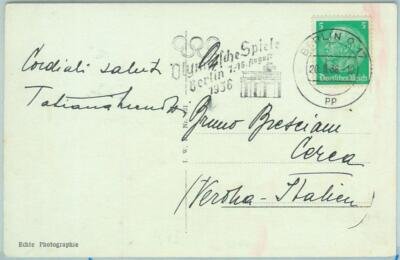 Cordiali saluti
Olympische Spiele
Berlin 1.-16. August
1936
BERLIN
PP
5 5
Deutsches Reich
Bruno Bresciani
Cerea
(Verona - Italien)
Echte Photographie